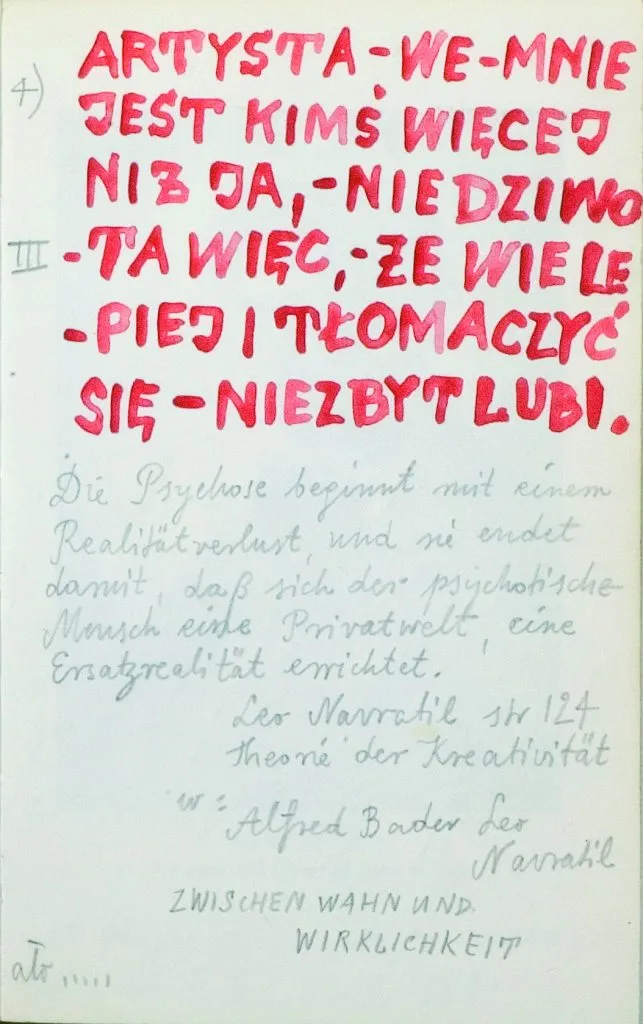 4)
ARTYSTA-WE-MNIE
JEST KIMŚ WIĘCEJ
NIŻ JA,-NIEDZIWO
III
-TA WIĘC,-ŻE WIE LE
-PIEJ I TŁOMACZYĆ
SIĘ-NIEZBYT LUBI.
Die Psychose beginnt mit einem
Realitätverlust, und sie endet
damit, daß sich der psychotische
Mensch eine Privatwelt, eine
Ersatzrealität errichtet.
Leo Navratil str 124
Theorie der Kreativität
w: Alfred Bader Leo
Navratil
ZWISCHEN WAHN UND
WIRKLICHKEIT